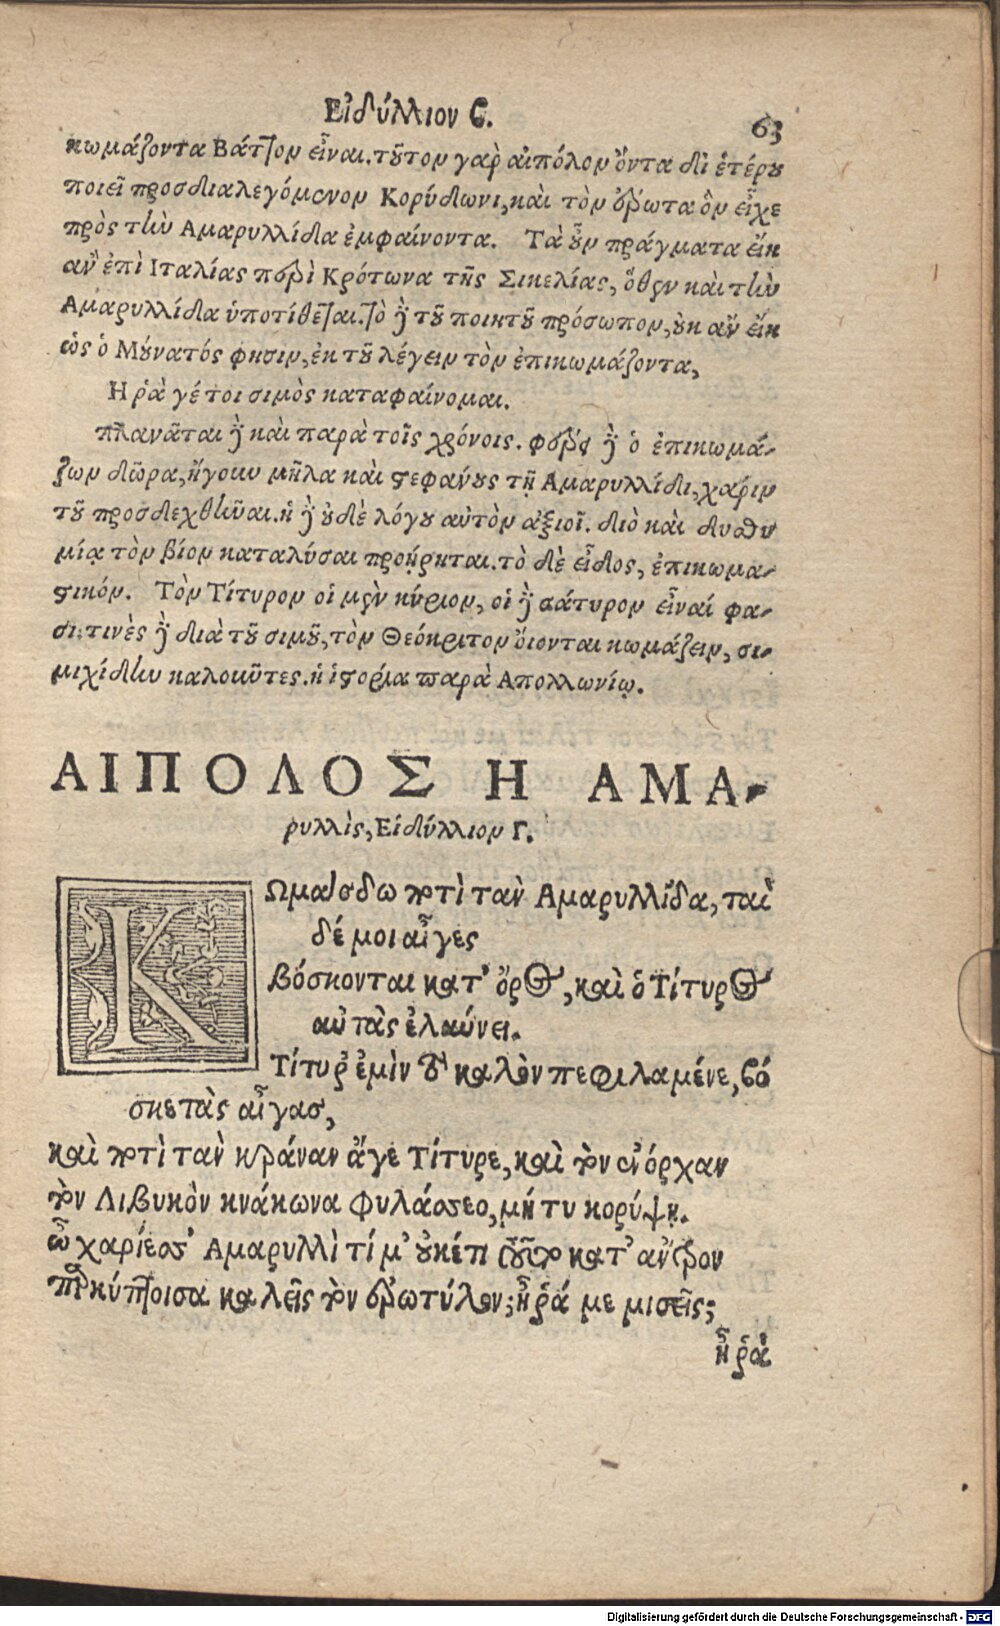 Εἰδύλλιον ϐ.
63
κωμάζοντα Βάττον εἶναι. τοῦτον γὰρ αἰπόλον ὄντα δι ἑτέρου
ποιεῖ προσδιαλεγόμενον Κορύδωνι, καὶ τὸν ἔρωτα ὃν εἶχε
πρὸς τὴν Αμαρυλλίδα ἐμφαίνοντα. Τὰ οὖν πράγματα εἴη
ἂν ἐπὶ Ιταλίας περὶ Κρότωνα τῆς Σικελίας, ὅθεν καὶ τὴν
Αμαρυλλίδα ὑποτίθεται. τὸ δὲ τοῦ ποιητοῦ πρόσωπον, οὐκ ἂν εἴη
ὡς ὁ Μούνατός φησιν, ἐκ τοῦ λέγειν τὸν ἐπικωμάζοντα,
Η ῥὰ γέ τοι σιμὸς καταφαίνομαι.
πλανᾶται δὲ καὶ παρὰ τοῖς χρόνοις. φέρει δὲ ὁ ἐπικωμά-
ζων δῶρα, ἤγουν μῆλα καὶ στεφάνους τῇ Αμαρυλλίδι, χάριν
τοῦ προσδεχθῆναι. ἡ δὲ οὐδὲ λόγου αὐτὸν ἀξιοῖ. διὸ καὶ δυσθυ
μίᾳ τὸν βίον καταλύσαι προῄρηται. τὸ δὲ εἶδος, ἐπικωμα-
στικόν. Τὸν Τίτυρον οἱ μὲν κύριον, οἱ δὲ σάτυρον εἶναί φα-
σι. τινὲς δὲ διὰ τοῦ σιμοῦ, τὸν Θεόκριτον οἴονται κωμάζειν, σι-
μιχίδην καλοῦντες. ἡ ἱστορία παρὰ Απολλωνίῳ.
ΑΙΠΟΛΟΣ Η ΑΜΑ-
ρυλλὶς, Εἰδύλλιον Γ.
ΚΩμάσδω ποτὶ τὰν Αμαρυλλίδα, ταὶ
δέ μοι αἶγες
βόσκονται κατ' ὄρος, καὶ ὁ Τίτυρος
αὐτὰς ἐλαύνει.
Τίτυρ' ἐμὶν τὸ καλὸν πεφιλαμένε, βό
σκε τὰς αἶγας,
καὶ ποτὶ τὰν κράναν ἄγε Τίτυρε, καὶ τὸν ἐνόρχαν
τὸν Λιβυκὸν κνάκωνα φυλάσσεο, μή τυ κορύψῃ.
ὦ χαρίεσσ' Αμαρυλλὶ τί μ' οὐκέτι τοῦτο κατ' ἄντρον
παρκύπτοισα καλεῖς τὸν ἐρωτύλον; ἦ ῥά με μισεῖς;
ἦ ῥά
Digitalisierung gefördert durch die Deutsche Forschungsgemeinschaft - DFG